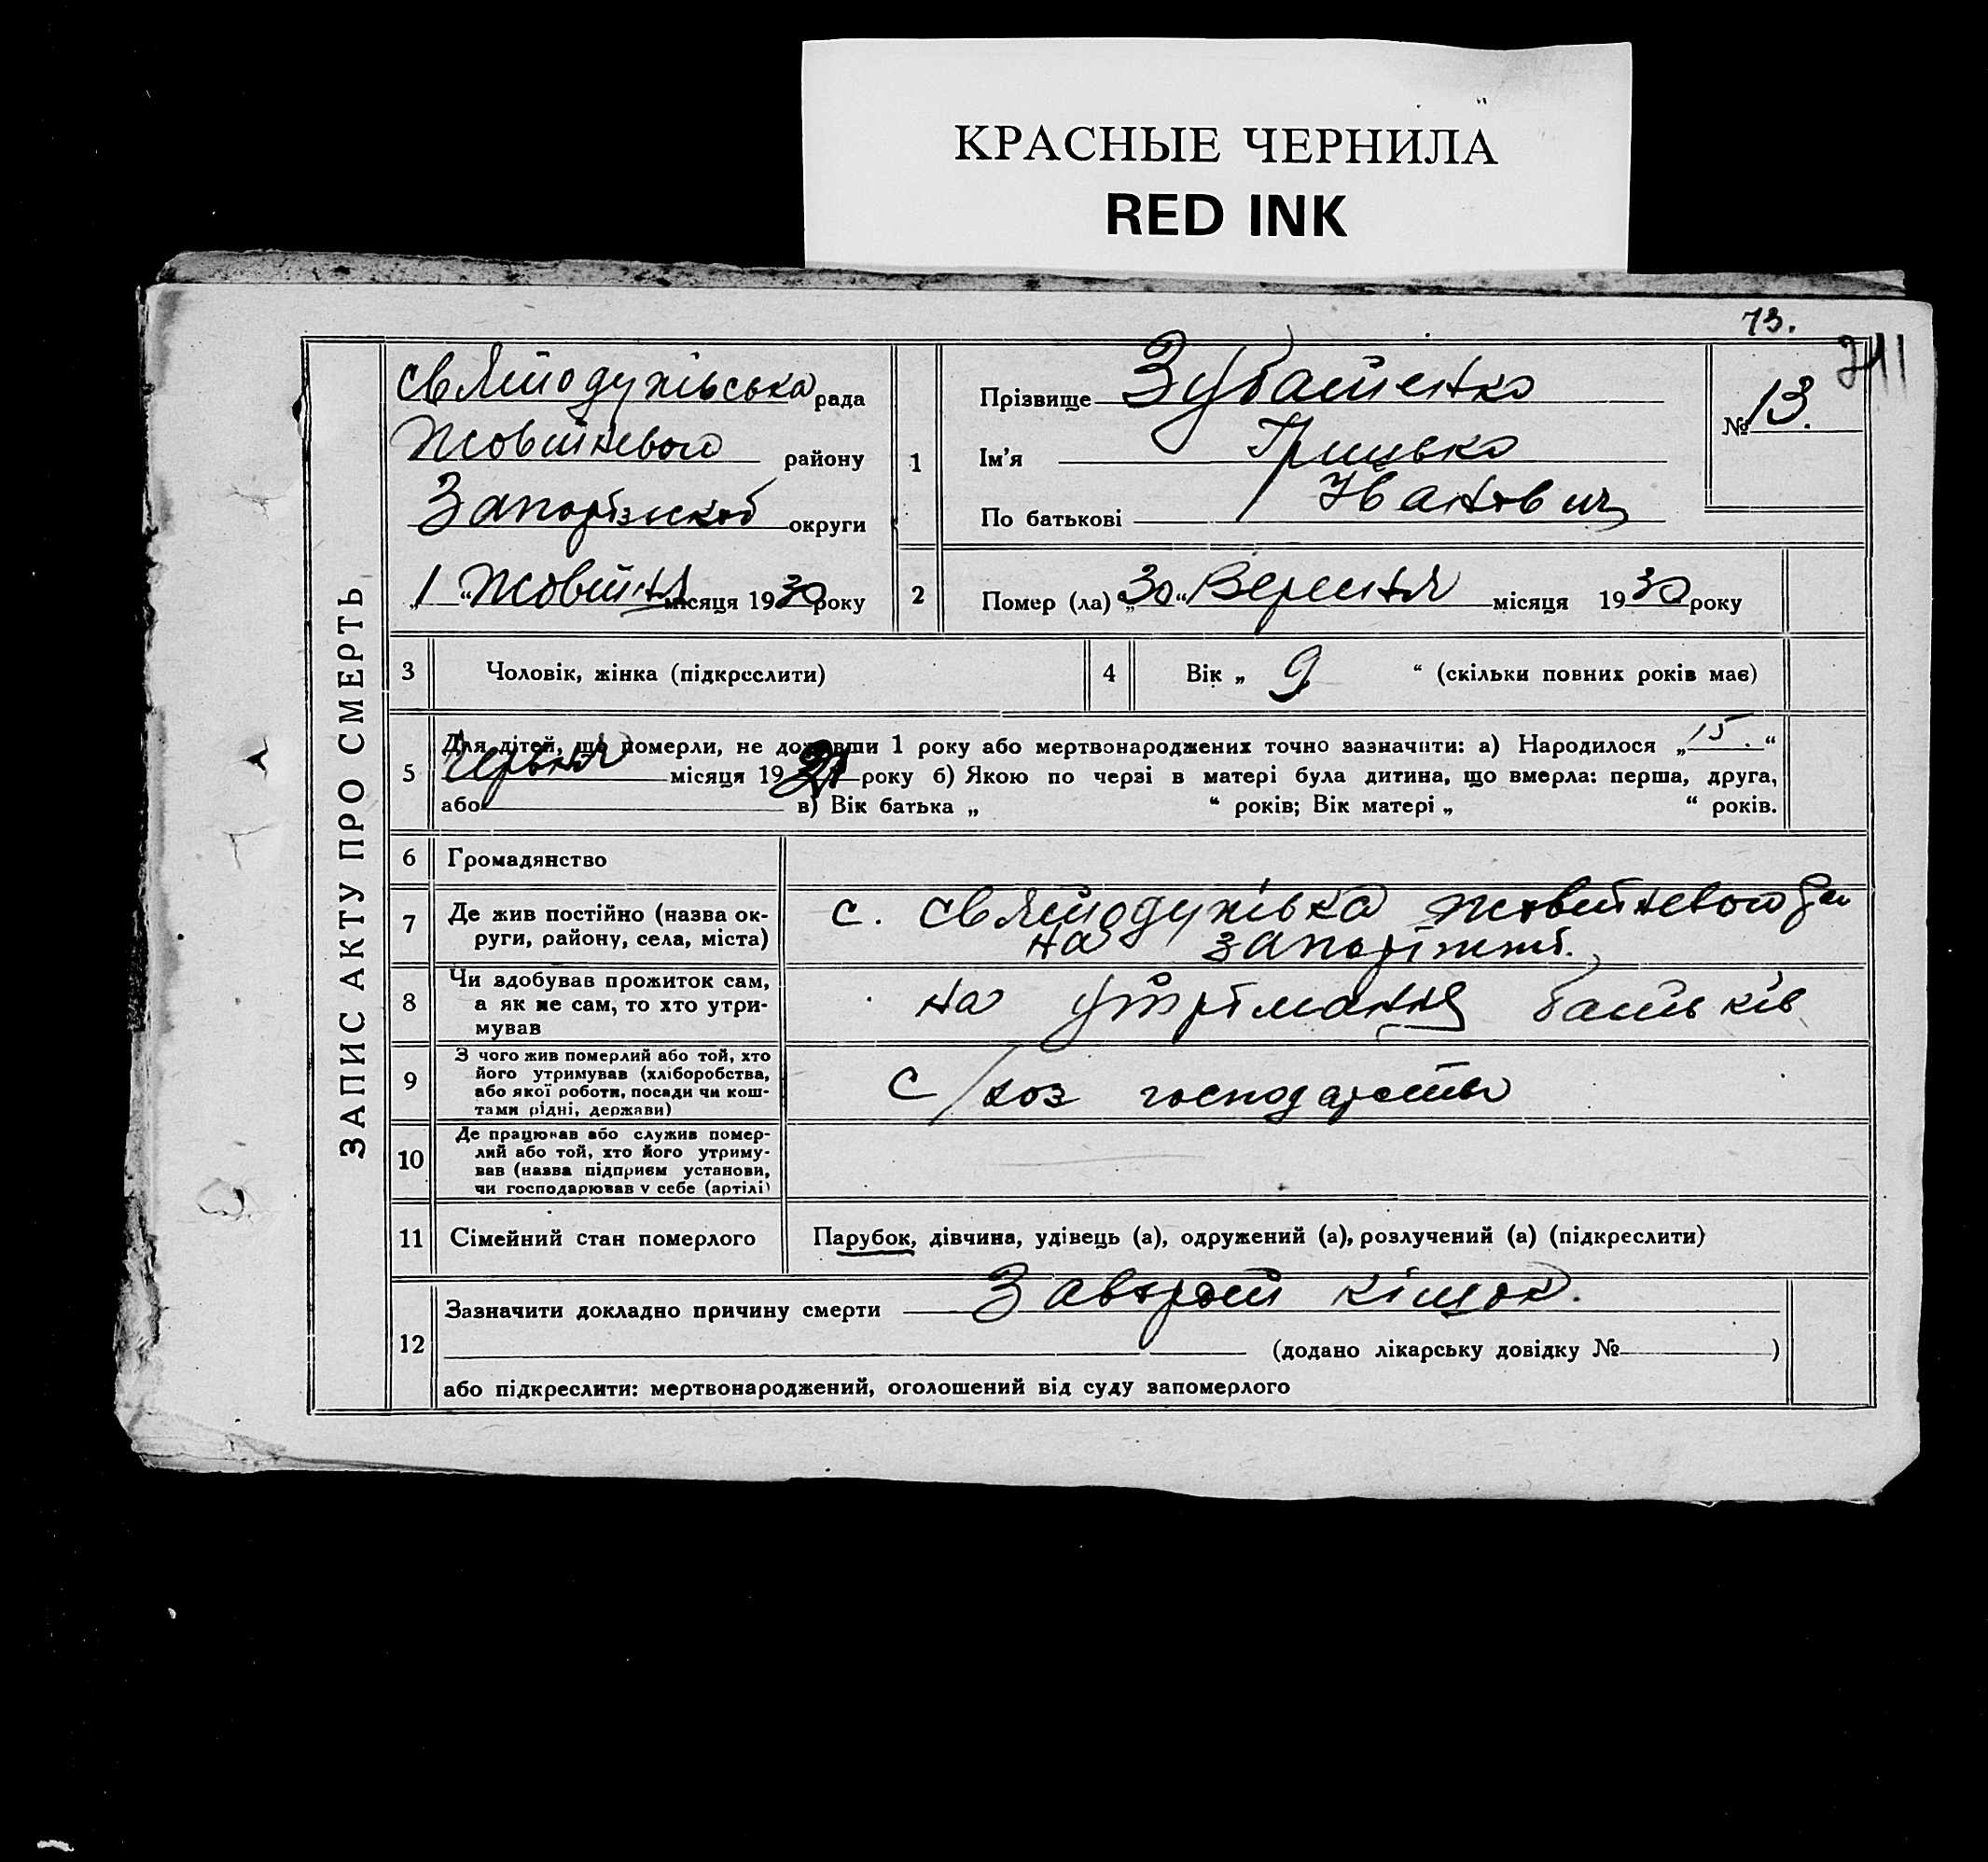 КРАСНЫЕ ЧЕРНИЛА
RED INK
13.
211
ЗАПИС АКТУ ПРО СМЕРТЬ
Святодухівська рада
Жовтневого району
Запоріжскої округи
„1“ Жовтня місяця 1930 року
1
Прізвище Зубатенко
Ім’я Грицько
По батькові Иванович
№ 13.
2
Помер (ла) „30“ Вересня місяця 1930 року
3 Чоловік, жінка (підкреслити)
4 Вік „ 9 “ (скільки повних років має)
5 Для дітей, що померли, не доживши 1 року або мертвонароджених точно зазначити: а) Народилося „15.“
Червня місяця 1921 року б) Якою по черзі в матері була дитина, що вмерла: перша, друга,
або в) Вік батька „ “ років; Вік матері „ “ років.
6 Громадянство
7 Де жив постійно (назва округи, району, села, міста)
с. Святодухівка Жовтневого
на Запоріжжі.
8 Чи здобував прожиток сам,
а як не сам, то хто утримував
на утрімання батьків
9 З чого жив померлий або той, хто
його утримував (хліборобства,
або якої роботи, посади чи коштами рідні, держави)
с/хоз господарства
10 Де працював або служив померлий або той, хто його утримував (назва підприєм установи,
чи господарював у себе (артілі)
11 Сімейний стан померлого
Парубок, дівчина, удівець (а), одружений (а), розлучений (а) (підкреслити)
12 Зазначити докладно причину смерти Заворот кішок.
(додано лікарську довідку № )
або підкреслити: мертвонароджений, оголошений від суду запомерлого